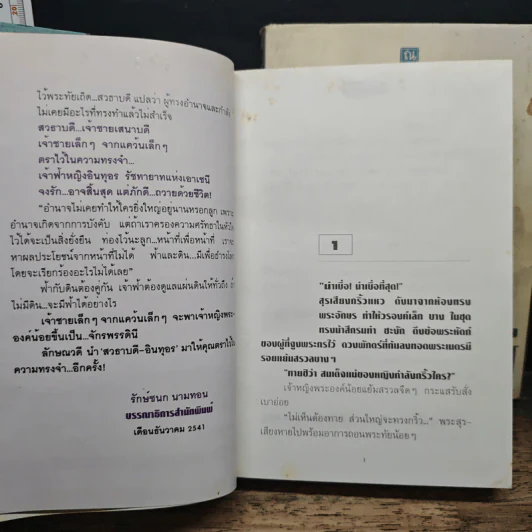 ไว้พระทัยเถิด...สวธาบดี แปลว่า ผู้ทรงอำนาจและกำลัง
ไม่เคยมีอะไรที่ทรงทำแล้วไม่สำเร็จ
สวธาบดี...เจ้าชายเสนาบดี
เจ้าชายเล็กๆ จากแคว้นเล็กๆ
ตราไว้ในความทรงจำ...
เจ้าฟ้าหญิงอินทุอร รัชทายาทแห่งเอาเชนี
จงรัก...อาจสิ้นสุด แต่ภักดี...ถวายด้วยชีวิต!
"อำนาจไม่เคยทำให้ใครยิ่งใหญ่อยู่นานหรอกลูก เพราะ
อำนาจเกิดจากการบังคับ แต่ถ้าเราครองความศรัทธาในหัวใจ
ไว้ได้จะเป็นสิ่งยั่งยืน ท่องไว้นะลูก...หน้าที่เพื่อหน้าที่ เราจะ
หาผลประโยชน์จากหน้าที่ไม่ได้ ฟ้าและดิน...มีเพื่อธำรงโลก
โดยจะเรียกร้องอะไรไม่ได้เลย"
ฟ้ากับดินต้องคู่กัน เจ้าฟ้าต้องดูแลผ่นดินให้ทั่วถึง
ไม่มีดิน...จะมีฟ้าได้อย่างไร
เจ้าชายเล็กๆ จากแคว้นเล็กๆ จะพาเจ้าหญิงพระ
องค์น้อยขึ้นเป็น...จักรพรรดินี
ลักษณวดี นำ 'สวธาบดี-อินทุอร' มาให้คุณตราไว้ใน
ความทรงจำ...อีกครั้ง!
รักษ์ชนก นามทอน
บรรณาธิการสำนักพิมพ์
เดือนธันวาคม 2541
1
"น่าเบื่อ! น่าเบื่อที่สุด!"
สุรเสียงกริ้วแหว ดังมาจากห้องทรง
พระอักษร ทำให้วรองค์เล็ก บาง ในชุด
ทรงม้าสีกรมท่า ชะงัก ดึงข้อพระหัตถ์
ของผู้ที่จูงพระกรไว้ ดวงพักตร์ที่ก้มลงทอดพระเนตรมี
รอยแย้มสรวลบางๆ
"ทายซิว่า สมเด็จแม่ของหญิงกำลังกริ้วใคร?"
เจ้าหญิงพระองค์น้อยแย้มสรวลจืดๆ กระแสรับสั่ง
เบาย่อย
"ไม่เห็นต้องทาย ส่วนใหญ่จะทรงกริ้ว..." พระสุร-
เสียงหายไปพร้อมอาการถอนพระทัยน้อยๆ
1